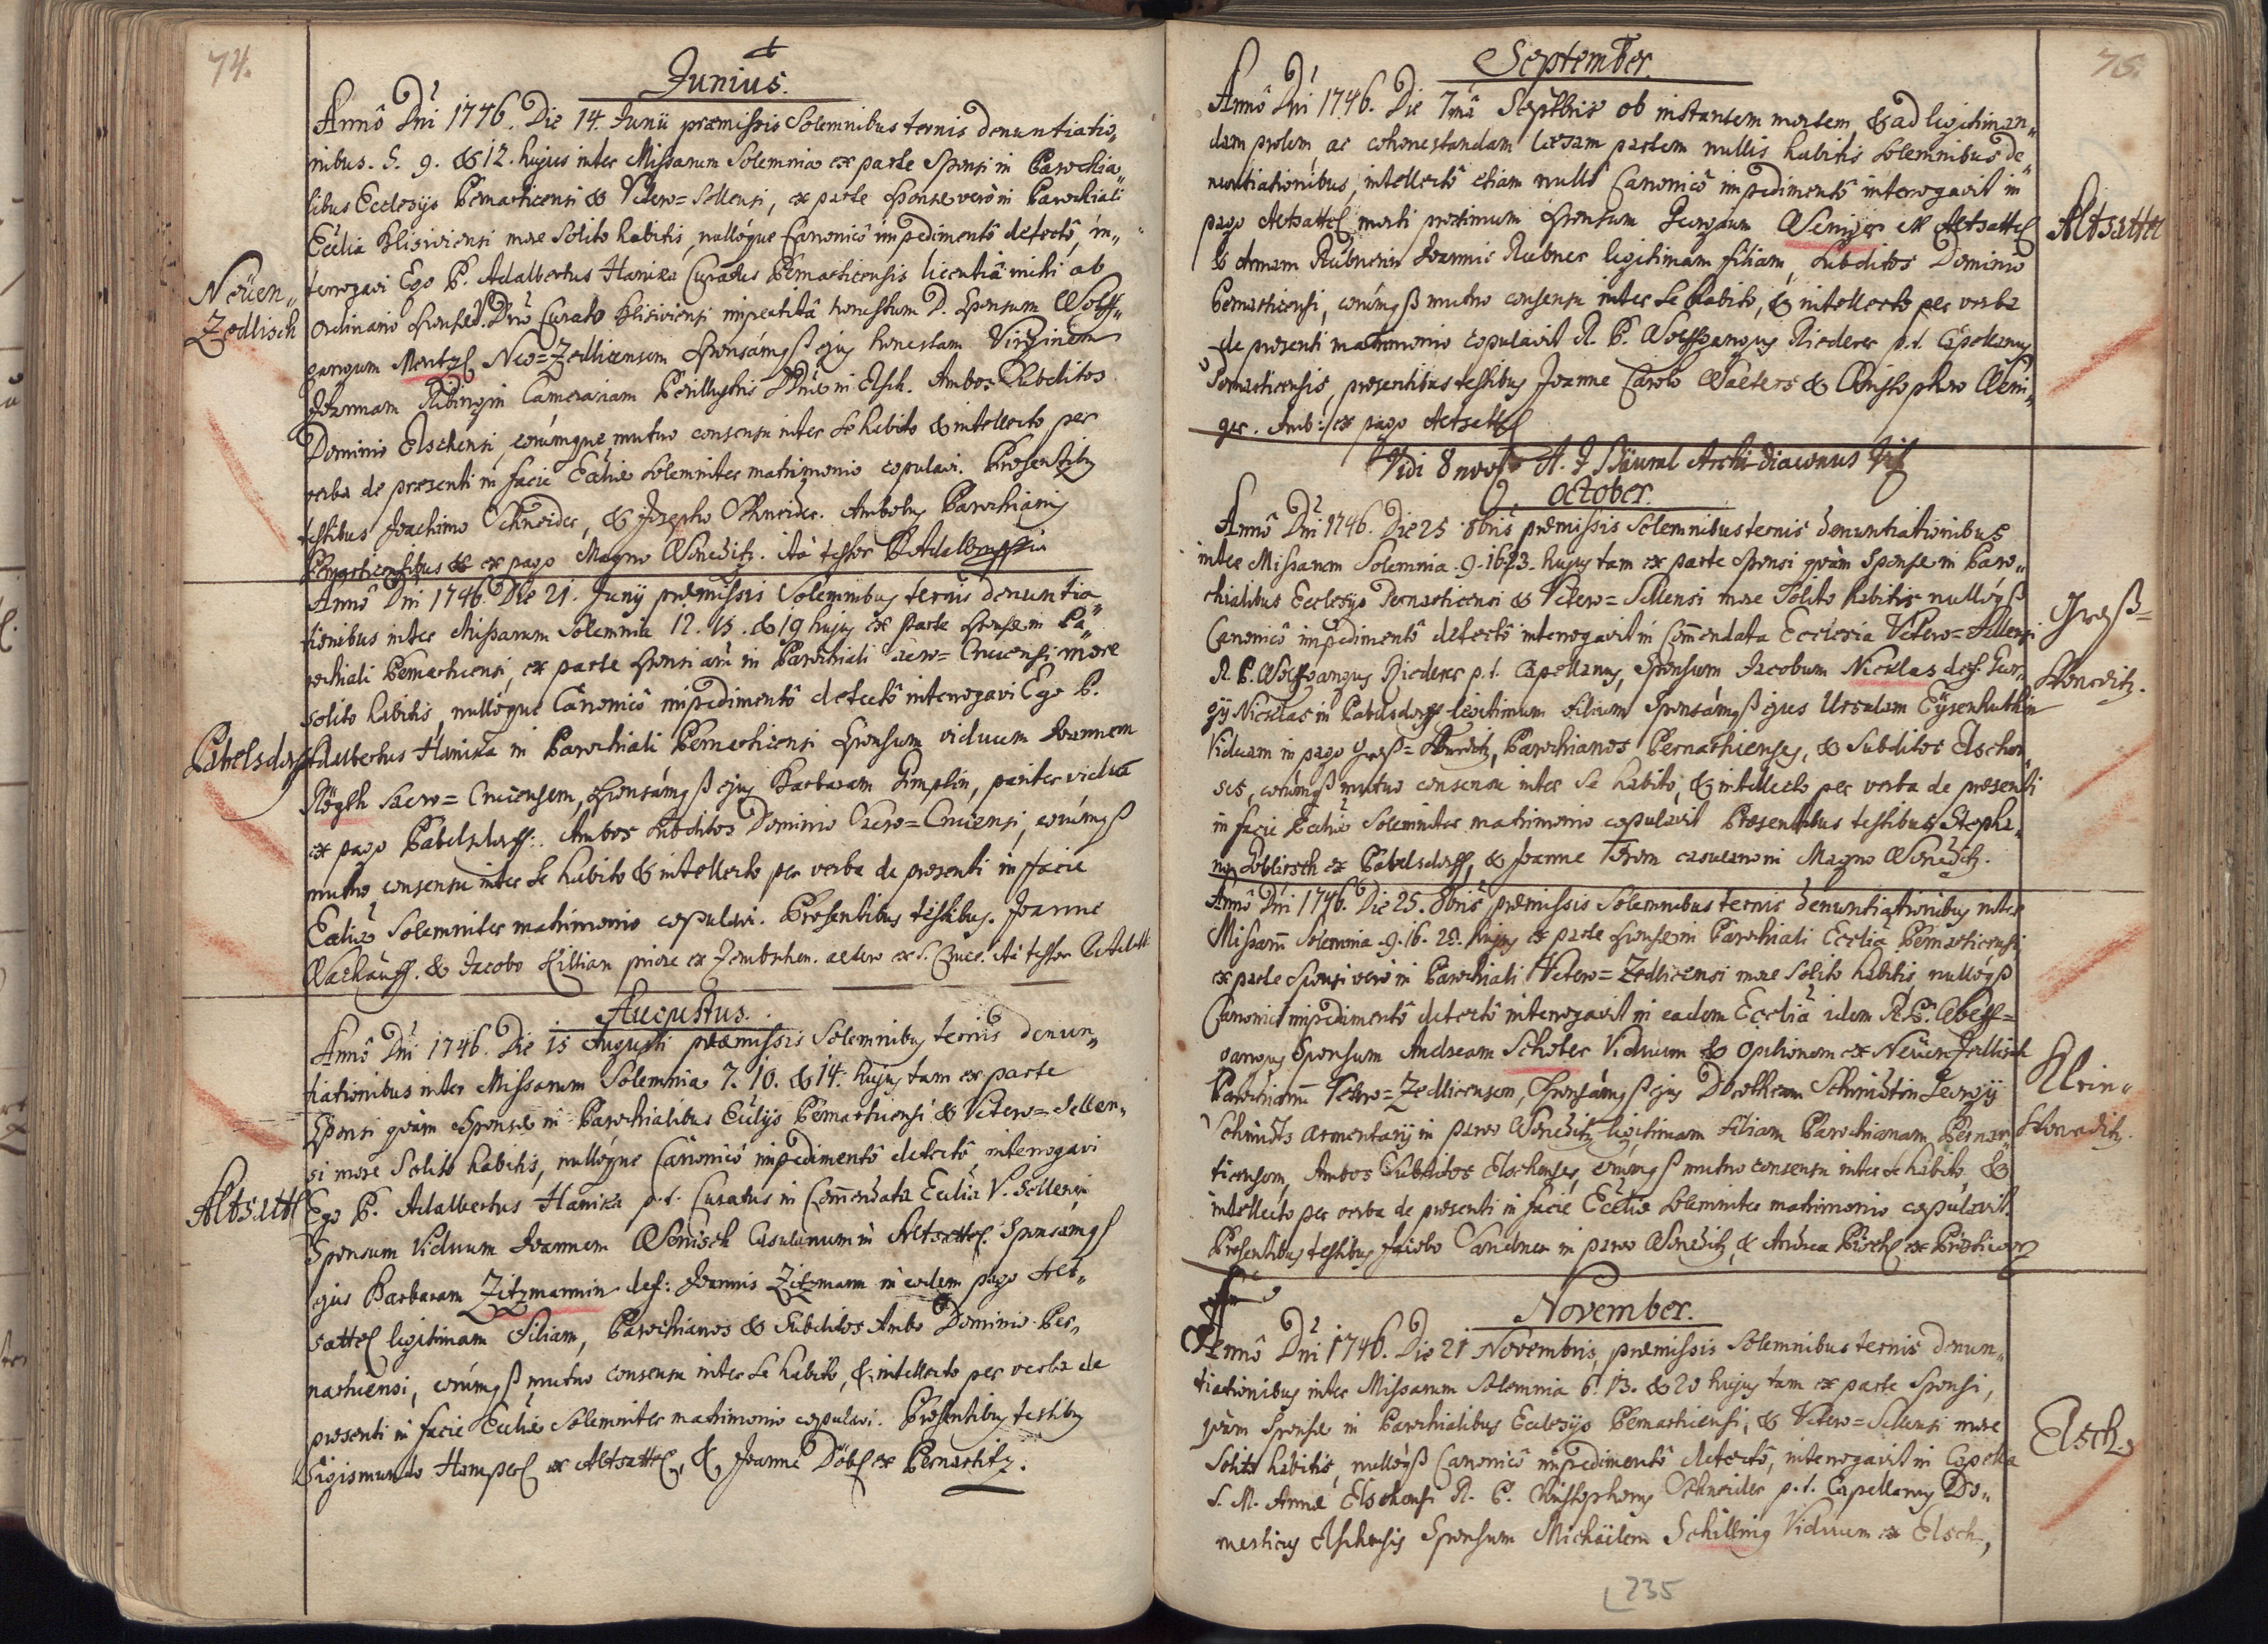 74.
Junius.
Annô Dni 1746. Die 14. Junii præmissis Solemnibus ternis denuntiatio„
nibus. 5. 9. & 12. hujus inter Missarum Solemnia ex parte Sponsi in Parochia„
libus Ecclesijs Pernarticensi & Vetero=Sellensi, ex parte Sponsæ verò in Parochiali
Ecclia Elisiviensi more Solito habitis, nullóque Canonicô impedimentô detectô, in„
Neüen„
Zedlisch
terrogavi Ego P. Adalbertus Hanika Curatus Pernarticensis licentiâ mihi ab
Ordinario Sponsæ Dno Curato impertitâ honestum D. Sponsum Wolff„
gangum Mentzl Neo=Zedlicensem Sponsámqß ejus honestam Virginem
Joannam Camerariam Perillustris Dnæ in Elsch. Ambos Subditos
Dominio Elschensi, eorúmque mutuo consensu inter Se habito & intellecto per
verba de præsenti in facie Ecliæ Solemniter matrimonio copulavi. Præsentibus
testibus Joachimo Schneider, & Josepho Schneider. Ambobus Parochianis
Pernarticensibus & ex pago Magno Wonetitz. Ità testor P. Adalbertus
Annô Dni 1746. Die 21. Junij præmissis Solemnibus ternis denuntia„
tionibus inter Missarum Solemnia 12. 15. & 19 hujus ex parte Sponsæ in Pa„
rochiali Pernarticensi, ex parte Sponsi aũ in Parochiali Sacro=Crucensi more
solito habitis, nullóque Canonicô impedimentô detectô interrogavi Ego P.
Pabelsdorff
Adalbertus Hanika in Parochiali Pernarticensi Sponsum viduum Joannem
Sacro=Crucensem, Sponsámqß ejus Barbaram Simplin, pariter viduã
ex pago Pabelsdorff. Ambos Subditos Dominio Sacro=Crucensi, eorúmqß
mutuo consensu inter Se habito & intellecto per verba de præsenti in facie
Ecliæ Solemniter matrimonio copulavi. Præsentibus testibus. Joanne
& Jacobo Killian priore ex altero ex S. Cruce. Ità testor P. Adalb:
Augustus.
Annô Dni 1746. Die 15 Augusti præmissis Solemnibus ternis denun„
tiationibus inter Missarum Solemnia 7. 10. & 14. hujus tam ex parte
Sponsi quàm Sponsæ in Parochialibus Eclijs Pernarticensi & Vetero=Sellen„
si more Solito habitis, nullóque Canonicô impedimentô detectô interrogavi
Altsattl
Ego P. Adalbertus Hanika p.t. Curatus in Com̃endata Eclia V. Sellensi
Sponsum Viduum Joannem Wönisch Casulanum in Altsattel Sponsámqß
ejus Barbaram Zitzmannin def: Joannis Zitzmann in eodem pago Alt„
sattel legitimam Filiam, Parochianos & Subditos Ambo Dominio Per„
narticensi, eorúmqß mutuo consensu inter Se habito, & intellecto per verba de
præsenti in facie Ecliæ Solemniter matrimonio copulavi. Præsentibus testibus
Sigismundo Hamperl ex Altsattel, & Joanne Döbl ex Pernartitz.
75.
September.
Annô Dni 1746. Die 7mâ Septbris ob instantem mortem, & ad legitiman„
dam prolem, ac cohonestandam læsam partem nullis habitis Solemnibus de„
nuntiationibus, intellectô etiam nullô Canonicô impedimentô interrogavit in
Altsattel
pago Altsattel morti proximum Sponsum Georgium Weniger ex Altsattel
& Annam Rübnerin Joannis Rubner legitimam filiam, Subditos Dominio
Pernarticensi, eorúmqß mutuo consensu inter Se habito, & intellecto per verba
de præsenti matrimonio copulavit R. P. Wolffgangus Riederer p.t. Capellanus
Pernarticensis, præsentibus testibus Joanne Carolo Walters & Christophoro Weni„
ger. Amb: ex pago Altsattel
Vidi 8 novb A. J Bäuml Archidiaconus
October.
Annô Dni 1746. Die 25 8bris præmissis Solemnibus ternis denuntiationibus
inter Missarum Solemnia .9. 16. 23. hujus tam ex parte Sponsi quàm Sponsæ in Paro„
chialibus Ecclesijs Pernarticensi & Vetero=Sellensi more Solito habitis nullóqß
Groß=
Wonetitz.
Canonicô impedimentô detectô interrogavit in Com̃endata Ecclesia Vetero=Sellensi
R. P. Wolffgangus Riederer p.t. Capellanus, Sponsum Jacobum Nicklas def: Geor„
gij Nicklas in Pabelsdorff legitimum Filium Sponsámqß ejus Ursulam Eÿsenhuthin
Viduam in pago Groß=Wonetitz, Parochianos Pernarticenses, & Subditos Elschen„
ses, eorúmqß mutuo consensu inter Se habito, & intellecto per verba de præsenti
in facie Ecliæ Solemniter matrimonio copulavit Præsentibus testibus Stepha„
no ex Pabelsdorff, & Joanne casulano in Magno Wonetitz.
Annô Dni 1746. Die 25. 8bris præmissis Solemnibus ternis denuntiationibus inter
Missarũ Solemnia .9. 16. 23. hujus ex parte Sponsæ in Parochiali Ecclia Pernarticensi
ex parte Sponsi verò in Parochiali Vetero=Zedlicensi more Solito habitis, nullóqß
Canonicô impedimentô detectô interrogavit in eadem Ecclia idem R. P. Wolff=
Klein„
Wonetitz.
gangus Sponsum Andream Schober Viduum & Opilionem ex Neüenzedlisch
Parochianũ Vetero=Zedlicensem, Sponsámqß ejus Dorotheam Schmidtin Georgij
Schmidts armentarij in parvo Wonetitz legitimam Filiam Parochianam Pernar„
ticensem, Ambos Subditos Elschenses, eorúmqß mutuo consensu inter se habito, &
intellecto per verba de præsenti in facie Ecliæ Solemniter matrimonio copulavit.
Præsentibus testibus Jacobo Sandner in parvo Wonetitz, & Andrea
November.
Annô Dni 1746. Die 21 Novembris, præmissis Solemnibus ternis denun„
tiationibus inter Missarum Solemnia 6. 13. & 20 hujus tam ex parte Sponsi,
Elsch.
quàm Sponsæ in Parochialibus Ecclesijs Pernarticensi, & Vetero=Sellensi more
Solito habitis, nullóqß Canonicô impedimentô detectô, interrogavit in Capella
S. M. Annæ Elschensi R. P. Christophorus Schneider p.t. Capellanus Do„
mesticus Elschensis Sponsum Michäelem Schilling Viduum ex Elsch,
235